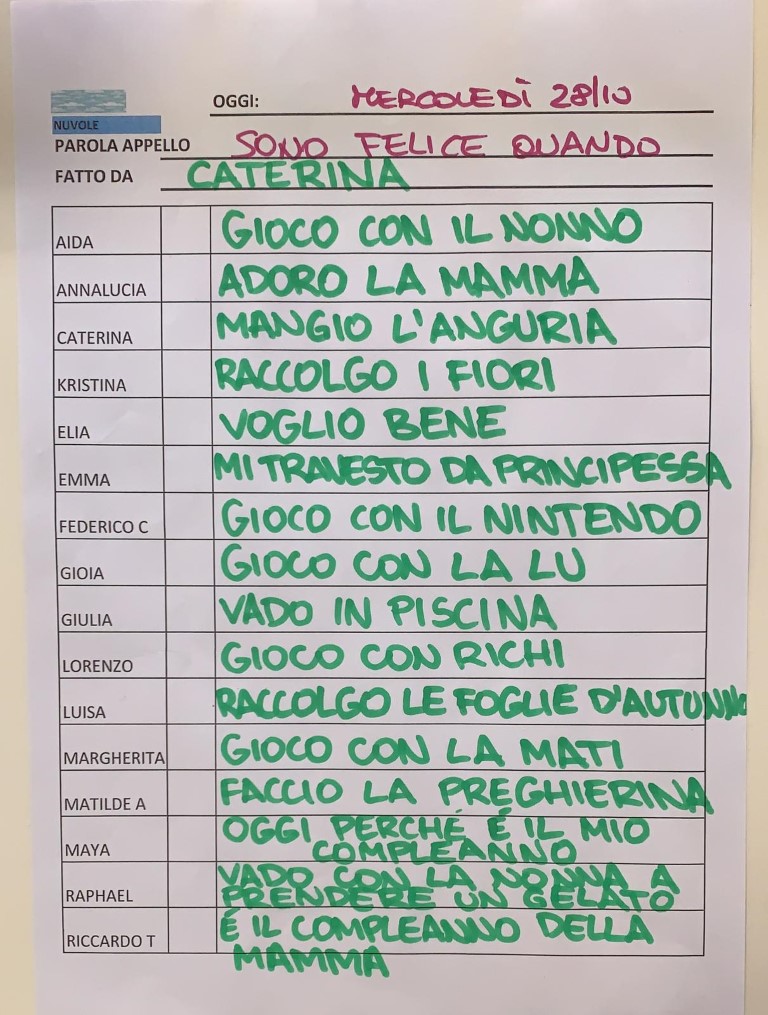 OGGI: MERCOLEDÌ 28/10
NUVOLE
PAROLA APPELLO SONO FELICE QUANDO
FATTO DA CATERINA
AIDA GIOCO CON IL NONNO
ANNALUCIA ADORO LA MAMMA
CATERINA MANGIO L'ANGURIA
KRISTINA RACCOLGO I FIORI
ELIA VOGLIO BENE
EMMA MI TRAVESTO DA PRINCIPESSA
FEDERICO C GIOCO CON IL NINTENDO
GIOIA GIOCO CON LA LU
GIULIA VADO IN PISCINA
LORENZO GIOCO CON RICHI
LUISA RACCOLGO LE FOGLIE D'AUTUNNO
MARGHERITA GIOCO CON LA MATI
MATILDE A FACCIO LA PREGHIERINA
MAYA OGGI PERCHÉ É IL MIO
COMPLEANNO
RAPHAEL VADO CON LA NONNA A
PRENDERE UN GELATO
RICCARDO T É IL COMPLEANNO DELLA
MAMMA